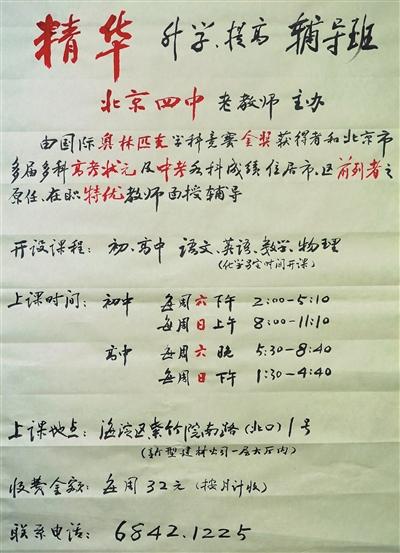 精华 升学、提高 辅导班
北京四中 老教师 主办
由国际奥林匹克学科竞赛金奖获得者和北京市
多届多科高考状元及中考各科成绩位居市、区前列者之
原任、在职特优教师面授辅导
开设课程：初、高中 语文、英语、数学、物理
（化学另定时间开课）
上课时间：初中 每周六下午 2:00-5:10
每周日上午 8:00-11:10
高中 每周六晚 5:30-8:40
每周日下午 1:30-4:40
上课地点：海淀区紫竹院南路（北口）1号
（新型建材公司一层大厅内）
收费金额：每周32元（按月计收）
联系电话：6842.1225